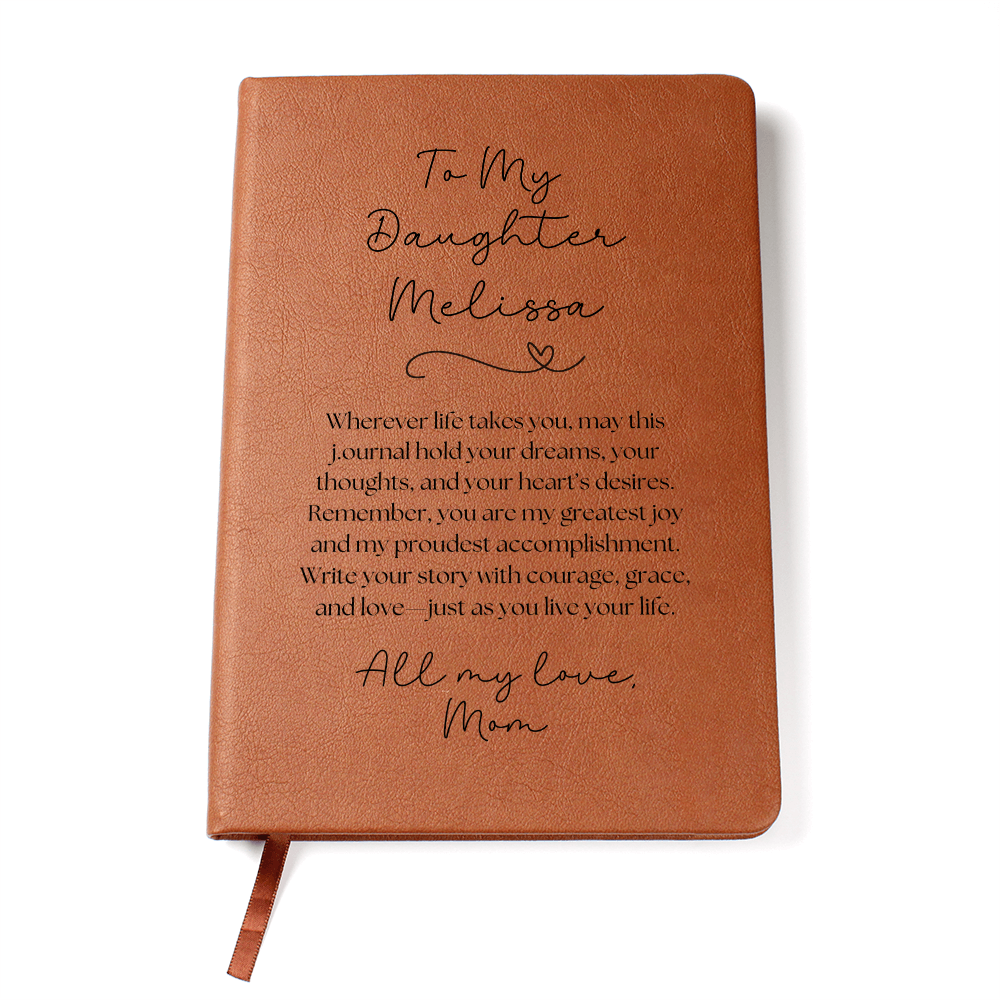 To My
Daughter
Melissa
Wherever life takes you, may this
j.ournal hold your dreams, your
thoughts, and your heart's desires.
Remember, you are my greatest joy
and my proudest accomplishment.
Write your story with courage, grace,
and love—just as you live your life.
All my love,
Mom